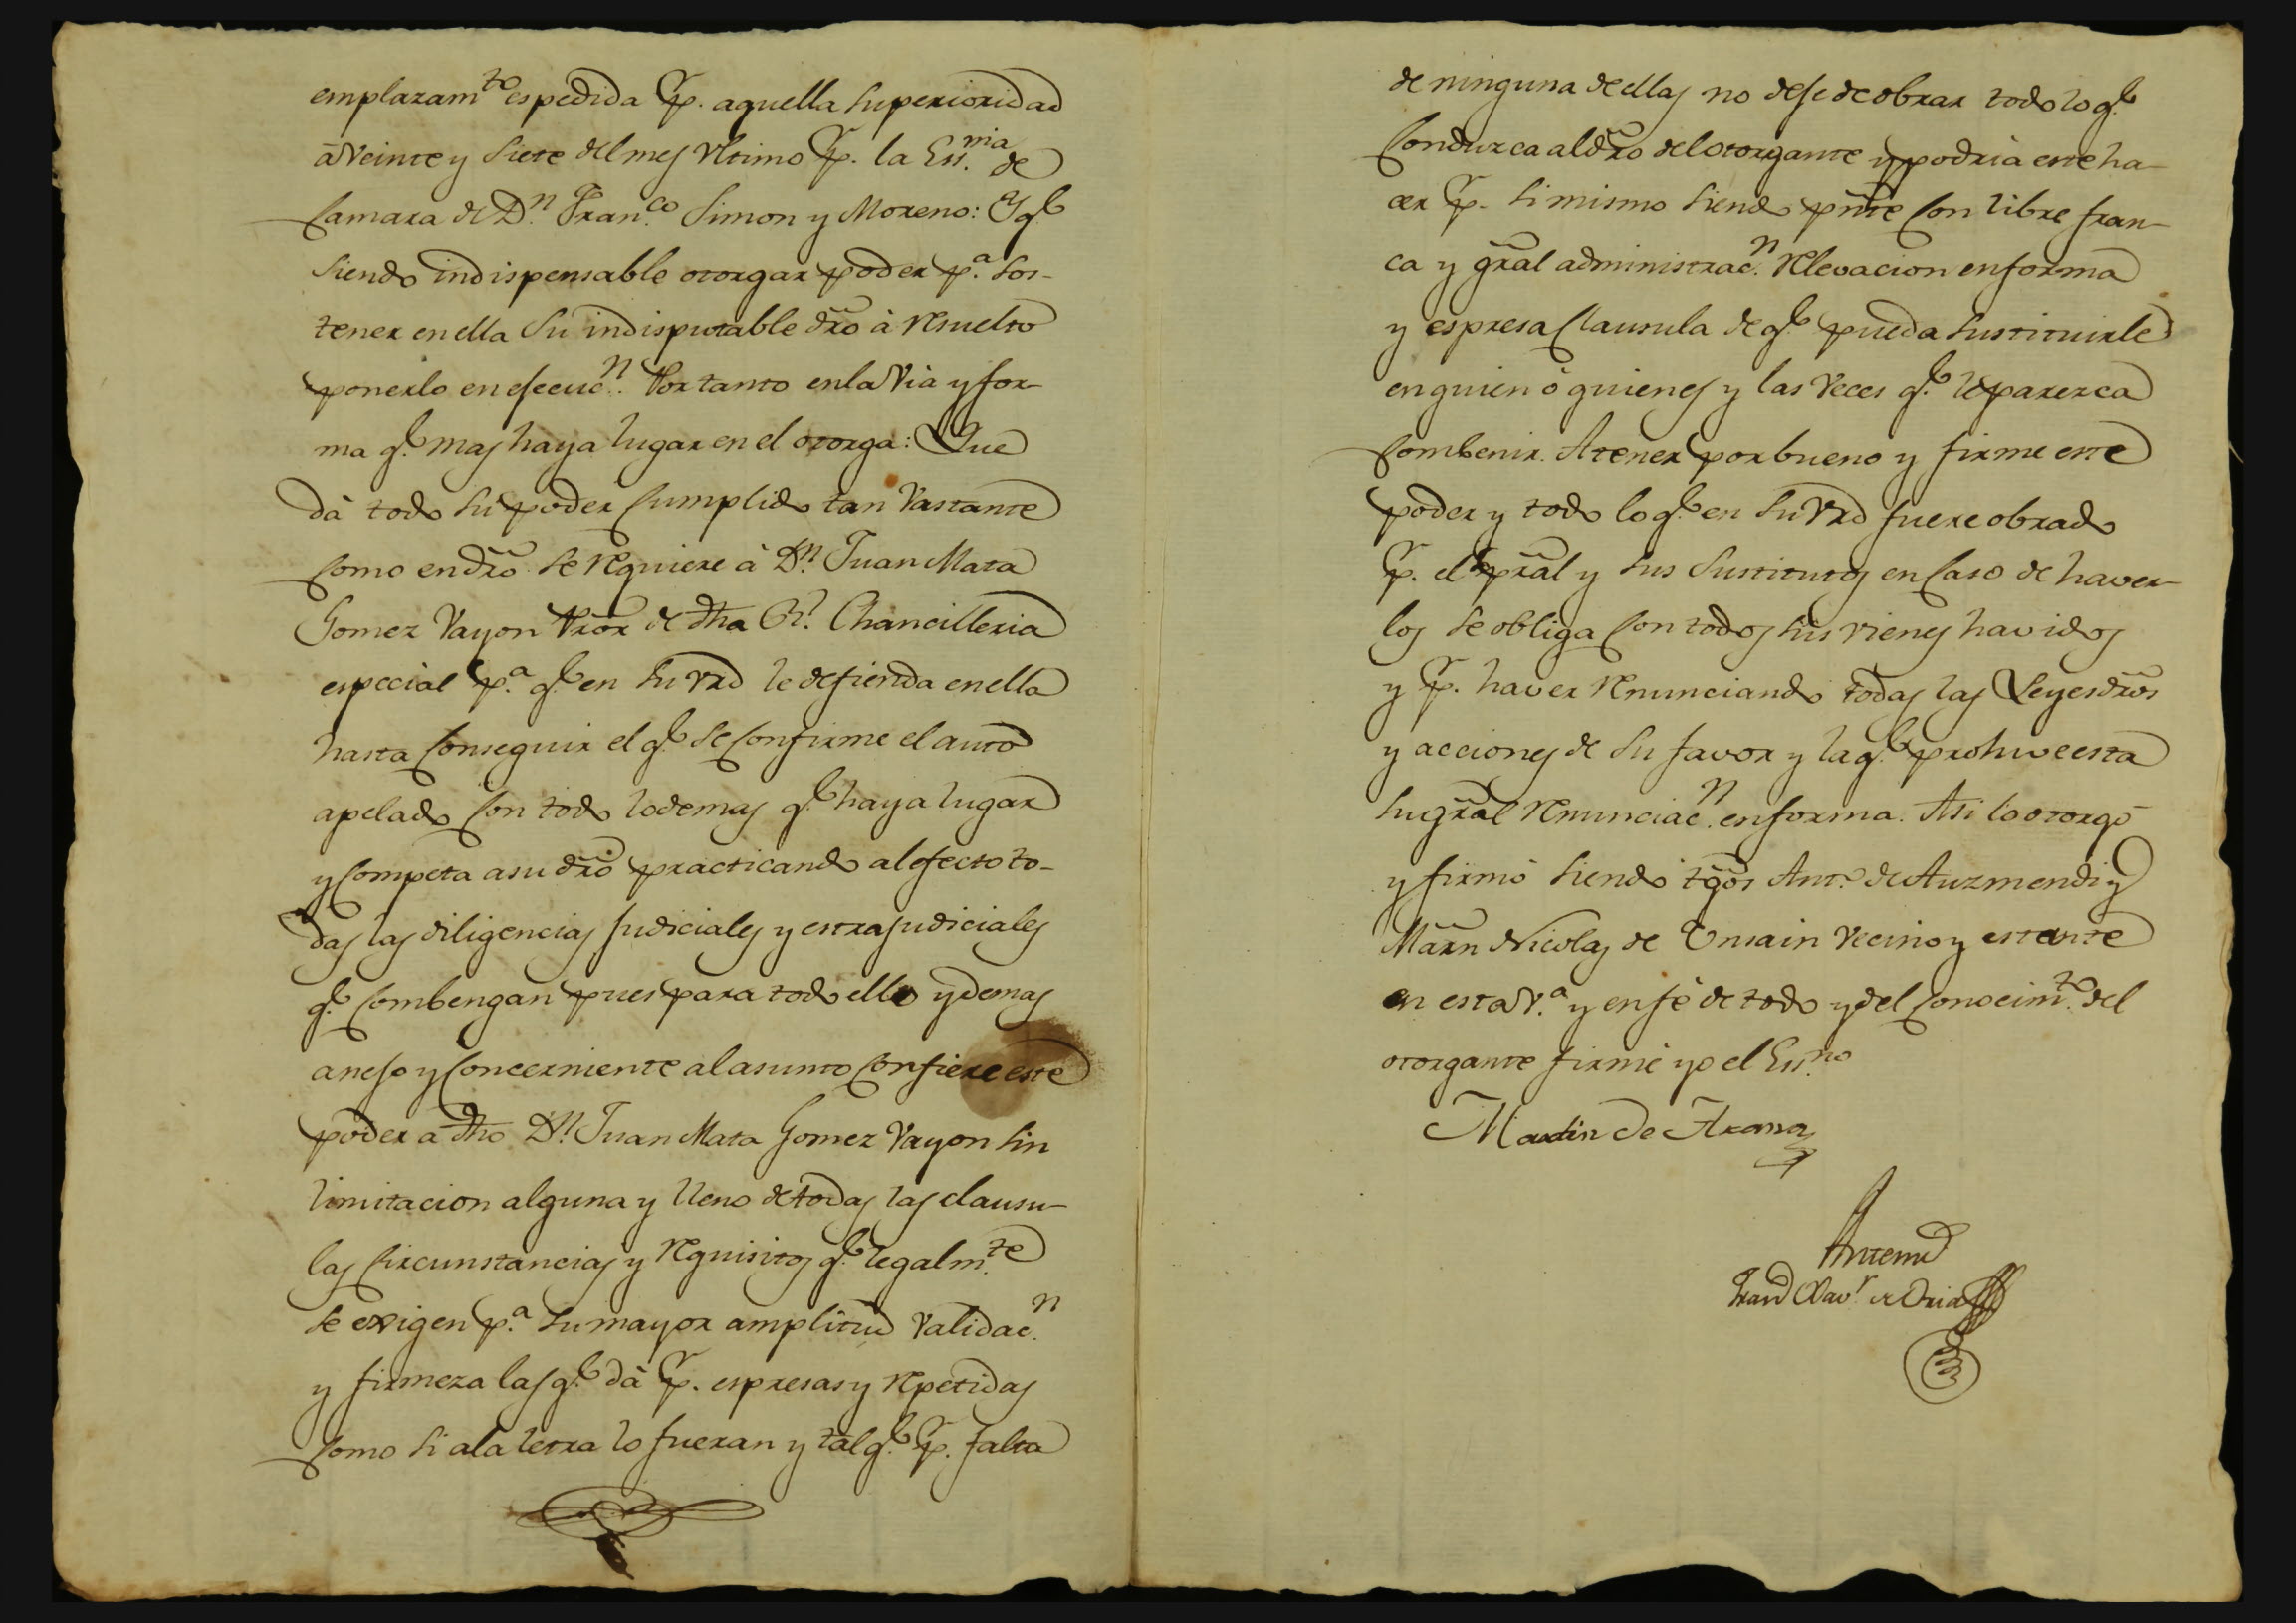 emplazam.to espedida p.r aquella Superioridad
à veinte y Siete del mes vltimo p.r la Ess.nia de
Camara de D.n Fran.co Simon y Moreno: Y q.e
siendo indispensable otorgar poder p.a Sos-
tener en ella Su indisputable dr̃o à resuelto
ponerlo en ejecuc.n Por tanto en la via y for-
ma q.e mas haya lugar en el otorga: Que
dà todo su poder Cumplido tan vastante
Como en dr̃o se requiere à D.n Juan Mata
Gomez Vayon Pror̃ de dh̃a R.l Chancilleria
especial p.a q.e en su vrd le defienda en ella
hasta Conseguir el q.e se Confirme el auto
apelado Con todo lo demas q.e haya lugar
y Competa a su dr̃o practicando al efecto to-
das las diligencias judiciales y estrajudiciales
q.e Combengan pues para todo ello y demas
anejo y Concerniente al asunto Confiere este
poder a dh̃o D.n Juan Mata Gomez Vayon sin
limitacion alguna y lleno de todas las clausu-
las Circunstancias y requisitos q.e legalm.te
se exigen p.a su mayor amplitud validac.n
y firmeza las q.e dà p.r espresas y repetidas
Como si a la letra lo fueran y tal q.e p.r falta
de ninguna de ellas no deje de obrar todo lo q.e
Conduzca al dr̃o del otorgante y podria este ha-
cer p.r si mismo siendo pñte Con libre fran-
ca y gr̃al administrac.n relevacion en forma
y espresa Clausula de q.e pueda sustituirle
en quien ò quienes y las veces q.e le parezca
Combenir. A tener por bueno y firme este
poder y todo lo q.e en su vrd fuere obrado
p.r el pr̃al y sus Sustitutos en Caso de haver-
los se obliga Con todos sus vienes havidos
y p.r haver renunciando todas las Leyes dr̃os
y acciones de su favor y la q.e prohive esta
su gr̃al renunciac.n en forma. Asi lo otorgò
y firmò siendo tg̃os Ant.o de Auzmendi y
Mar̃n Nicolas de Unsain vecino y estante
en esta V.a y en fè de todo y del Conocim.to del
otorgante firmè yo el Ess.no
Martin de Arana
Antemi
Fran.co Xav.r de Oria